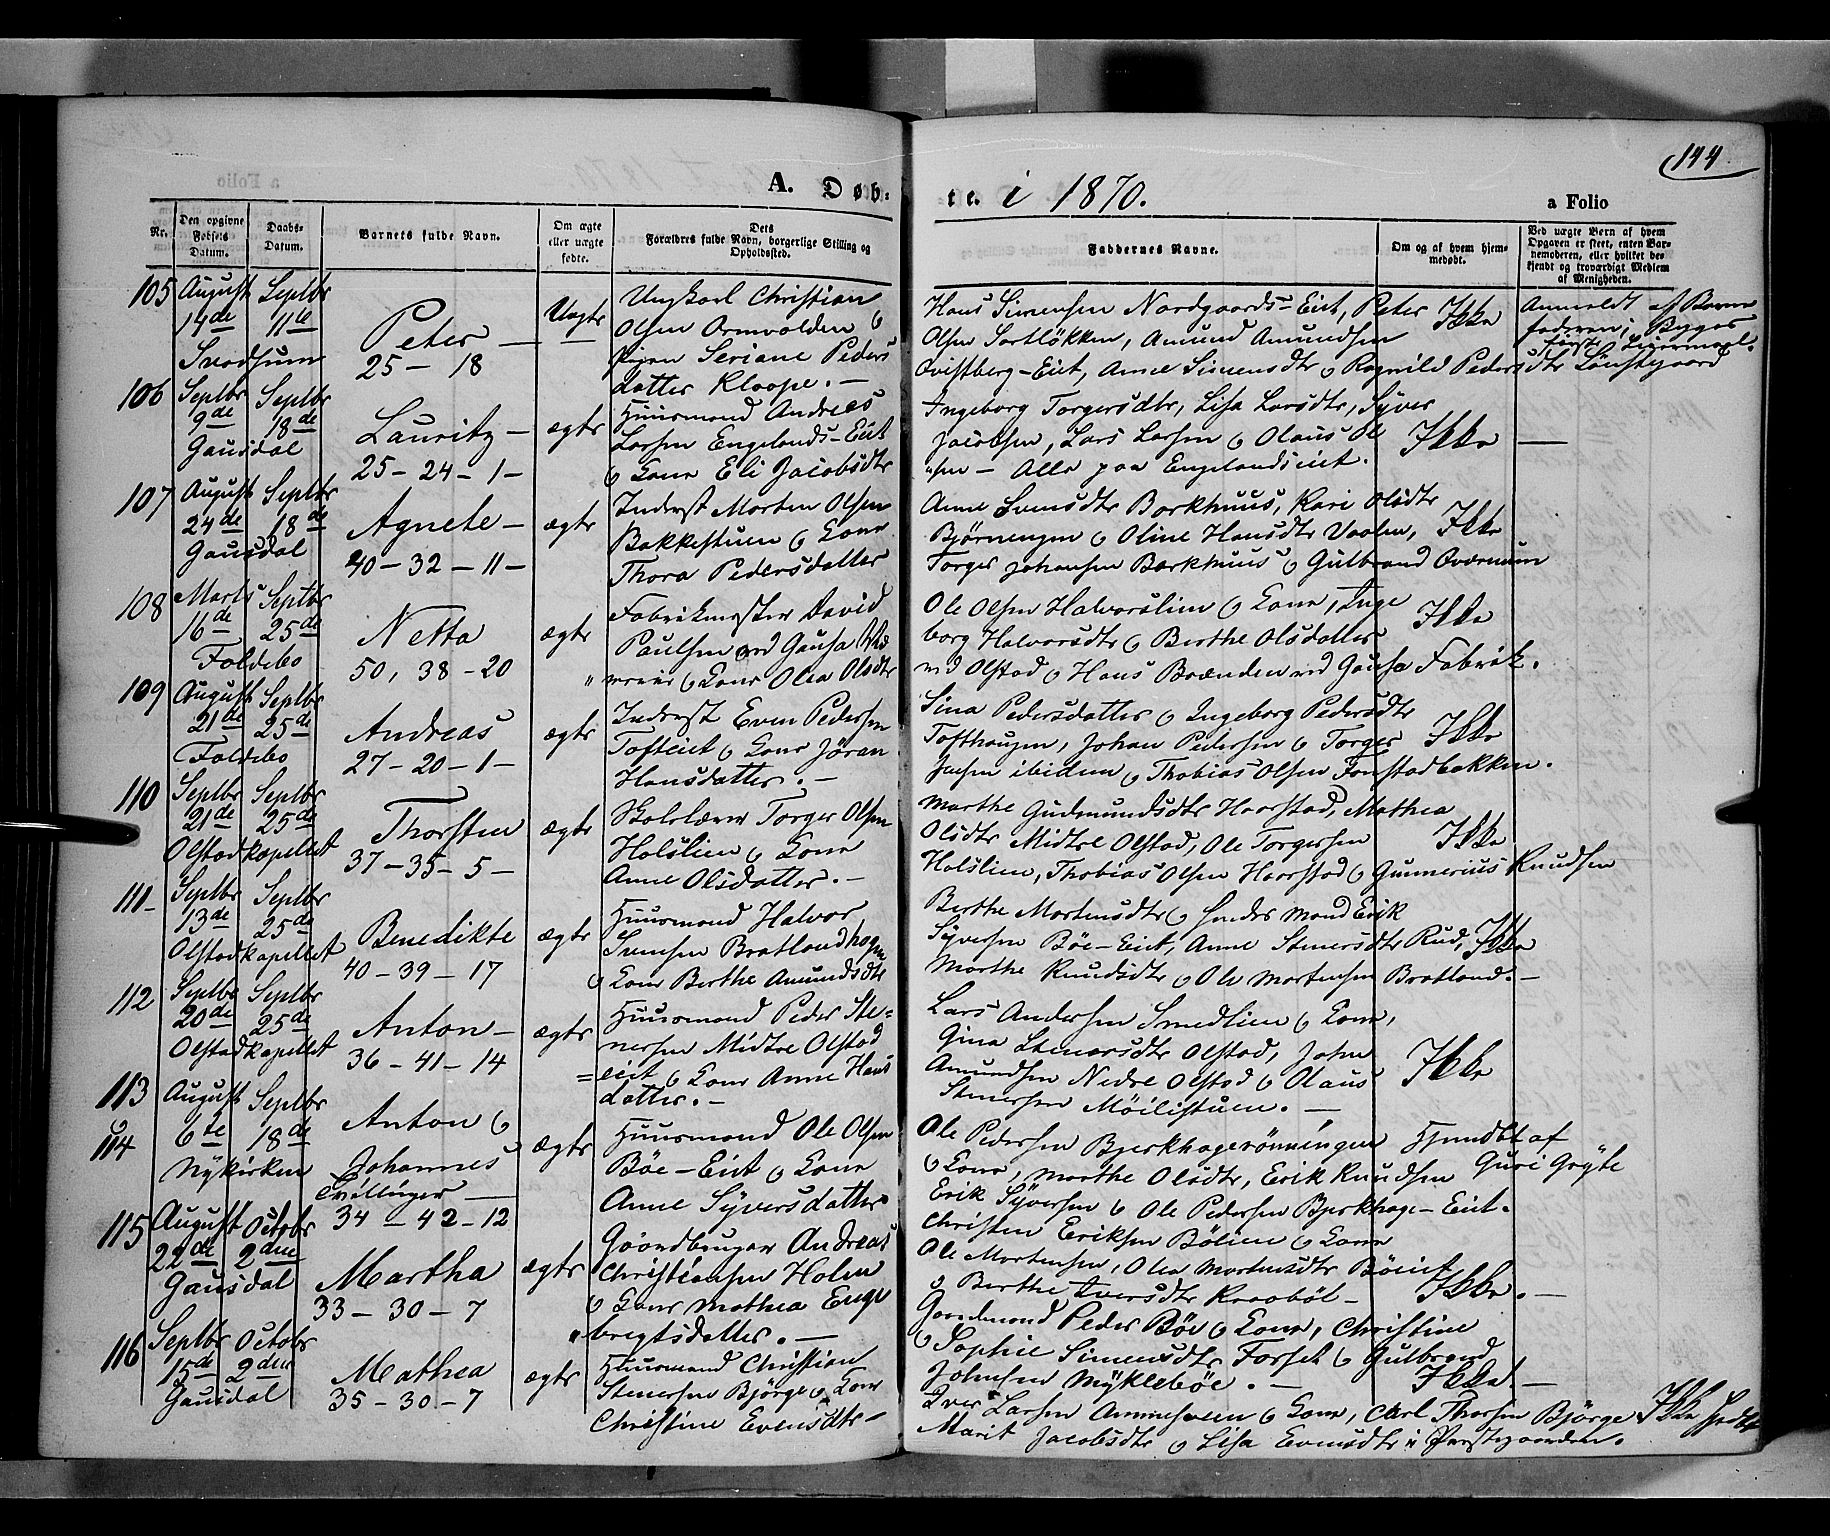 144.
A. Døb-
te. i 1870.
a Folio
Nr.
Den opgivne
Fødsels
Datum.
Daabs-
Datum.
Barnets fulde Navn.
Om ægte
eller uægte
fødte.
Dets
Forældres fulde Navn, borgerlige Stilling og
Opholdssted.
Faddernes Navne.
Om og af hvem hjem-
medøbt.
Ved uægte Børn af hvem
Opgaven er skeet, enten Bar-
nemoderen, eller hvilket be-
kjendt og troværdigt Medlem
af Menigheden.
105 August Septbr
14de 11te
Svadsum
Peter —
25 - 18
Uægte
Ungkarl Christian
Olsen
Pigen Seriane Peders
datter Klaape. —
Hans Simensen Nordgaards-Eiet, Peter
Olsen Sortløkken, Amund Amundsen
Qvistberg-Eiet, Anne Simensdtr o Ragnild Pedersdtr
Ikke
Anmeldt af Barne
faderen;
106 Septbr Septbr
9de 18de
Gausdal
Lauritz —
25 - 24 - 1 -
ægte
Huusmand Andreas
Larsen Engelands-Eiet
o Kone Eli Jacobsdtr
Ingeborg Torgersdtr, Lisa Larsdtr, Syver
Jacobsen, Lars Larsen o Olaus Ol
"sen - Alle paa Engelandseiet.
Ikke —
107 August Septbr
24de 18de
Gausdal
Agnete —
40 - 32 - 11 -
ægte
Inderst Morten Olsen
Bakkestuen o Kone
Thora Pedersdatter
Anne Svensdtr Barkhuus, Kari Olsdtr
Bjørnengen o Oline Hansdtr
Torger Johansen Barkhuus o Gulbrand
Ikke
108 Marts Septbr
16de 25de
Foldebo
Netta
50, 38 - 20
ægte
Fabrikmester David
Paulsen ved Gausa
o Kone Olea Olsdtr
Ole Olsen Halvorslien o Kone, Inge
borg Halvorsdtr o Berthe Olsdatter
ved Olstad o Hans Brænden ved Gausa Fabrik.
Ikke
109 August Septbr
21de 25de
Foldebo
Andreas
27 - 20 - 1 -
ægte
Inderst Even Pedersen
Tofteiet o Kone Jøran
Hansdatter. —
Sina Pedersdatter o Ingeborg Pedersdtr
Tofthaugen, Johan Pedersen o Torger
ibidem o Thobias Olsen Fonstadbakken.
Ikke
110 Septbr Septbr
21de 25de
Olstadkapellet
Thorsten
37 - 35 - 5 -
ægte
Skolelærer Torger Olsen
Holslien o Kone
Anne Olsdatter. —
Marthe Gudmundsdtr Haarstad, Mathea
Olsdtr Midtre Olstad, Ole Torgersen
Holslien, Thobias Olsen Haarstad o Gunnerius Knudsen
Ikke
111 - Septbr Septbr
13de 25de
Olstadkapellet
Benedikte
40 - 39 - 17
ægte
Huusmand Halvor
Svensen Bratlandhagen
o Kone Berthe Amundsdtr
Berthe Mortensdtr o Erik
Syversen Bøe-Eiet, Anne Stenersdtr Rud,
Marthe Knudsdtr o Ole Mortensen Bratland. —
Ikke
112 Septbr Septbr
20de 25de
Olstadkapellet
Anton —
36 - 41 - 14
ægte
Huusmand Peder Ste-
nersen Midtre Olstad
=eiet o Kone Anne Hans
datter. —
Lars Andersen Smedlien o Kone,
Gina Stenersdtr Olstad, John
Amundsen Nedre Olstad o Olaus
Stenersen Møilistuen. —
Ikke
113
o
114
August Septbr
6te 18de
Nykirken
Anton o
Johannes
Tvillinger —
34 - 42 - 12
ægte
Huusmand Ole Olsen
Bøe-Eiet o Kone
Anne Syversdatter
Ole Pedersen Bjerkhagerønningen
o Kone, Marthe Olsdtr, Erik Knudsen
Erik Syversen o Ole Pedersen Bjerkhage-Eiet.
Hjemdøbt af
Guri Grýte
115 August Octobr
22de 2den
Gausdal
Martha
33 - 30 - 7
ægte
Gaardbruger Andreas
Christiansen Holen
o Kone Mathea Enge
"bregtsdatter. —
Christen Eriksen Bølien o Kone
Ole Mortensen, Olea Mortensdtr Bøeiet
o Berthe Iversdtr Kraabøl -
Ikke. —
116 Septbr Octobr
15de 2den
Gausdal
Mathea
35 - 30 - 7
ægte
Huusmand Christian
Stenersen Bjørge o Kone
Christine Evensdtr -
Gaardmand Peder Bøe o Kone, Christine
o Sophie Simensdtr Forset o Gulbrand
Johnsen Myklebøe. —
Ikke. —
Iver Larsen o Kone, Carl Thorsen Bjørge
Marit Jacobsdtr o Lisa Evensdtr i Præstegaarden.
Ikke